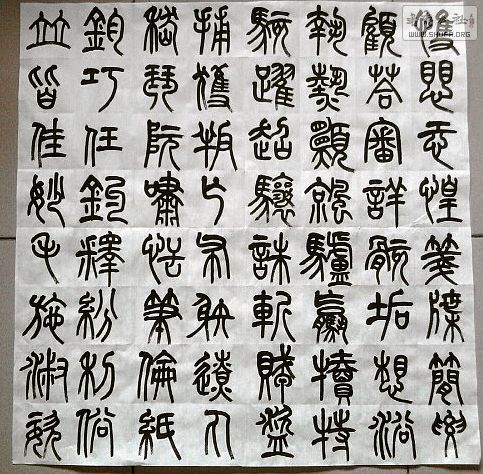 懼恐惶牋牒簡要
顧答審詳骸垢想浴
執熱願涼驢騾犢特
駭躍超驤誅斬賊盜
捕獲叛亡布射遼丸
嵇琴阮嘯恬筆倫紙
鈞巧任釣釋紛利俗
並皆佳妙毛施淑姿
WWW.SHUFA.ORG